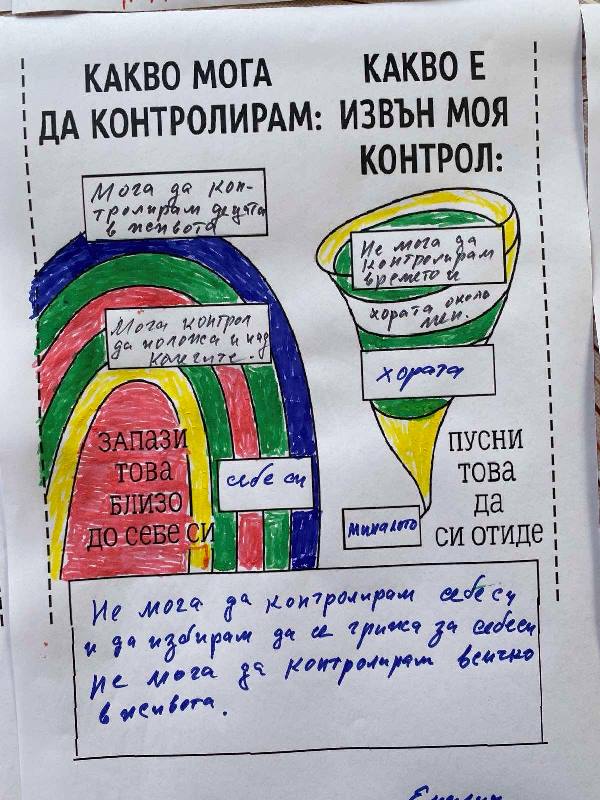 КАКВО МОГА
ДА КОНТРОЛИРАМ:
КАКВО Е
ИЗВЪН МОЯ
КОНТРОЛ:
Мога да кон-
тролирам децата
в живота
Мога контрол
да положа и над
колегите.
себе си
ЗАПАЗИ
ТОВА
БЛИЗО
ДО СЕБЕ СИ
Не мога да
контролирам
времето и
хората около
мен.
хората
миналото
ПУСНИ
ТОВА
ДА
СИ ОТИДЕ
Не мога да контролирам себе си
и да избирам да се грижа за себеси
Не мога да контролирам всичко
в живота.